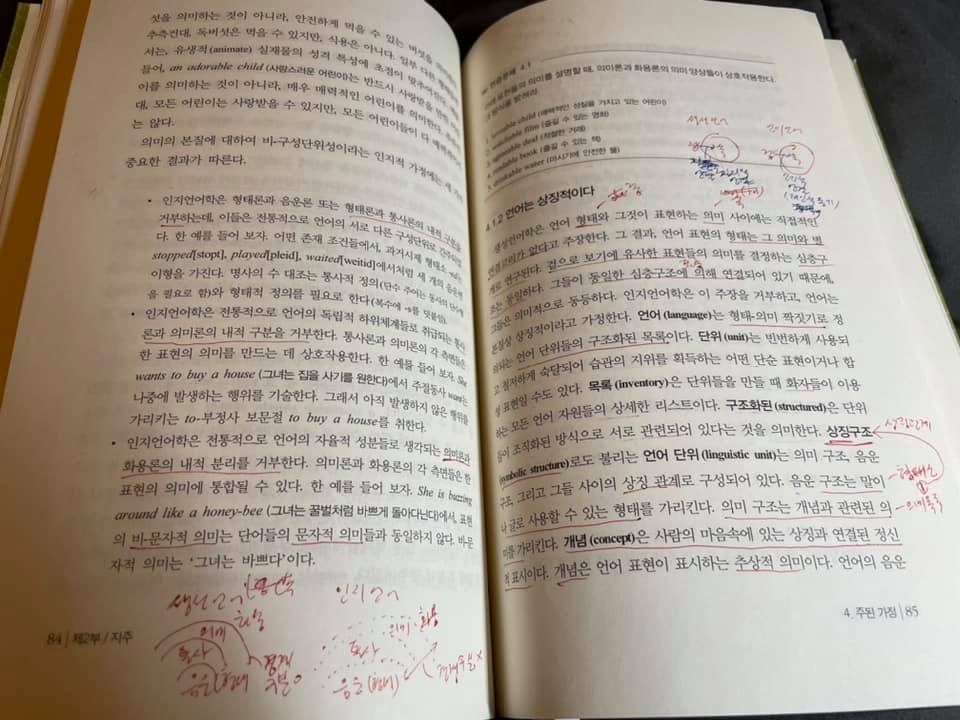 섯을 의미하는 것이 아니라, 안전하게 먹을 수 있는 버섯을
추측컨대, 독버섯은 먹을 수 있지만, 식용은 아니다. 일부 다른
서는, 유생적(animate) 실재물의 성격 특성에 초점이 맞추어진다.
들어, an adorable child (사랑스러운 어린이)는 반드시 사랑받을
이를 의미하는 것이 아니라, 매우 매력적인 어린이를 의미한다.
대, 모든 어린이는 사랑받을 수 있지만, 모든 어린이들이 다
는 않다.
의미의 본질에 대하여 비-구성단위성이라는 인지적 가정에는 세 가지
중요한 결과가 따른다.
• 인지언어학은 형태론과 음운론 또는 형태론과 통사론의 내적 구분을
거부하는데, 이들은 전통적으로 언어의 서로 다른 구성단위로
다. 한 예를 들어 보자. 어떤 존재 조건들에서, 과거시제 형태소
stopped[stopt], played[pleid], waited[weitid]에서처럼 세 개의
이형을 가진다. 명사의 수 대조는 통사적 정의(단수 주어는 동사의 단수형
을 필요로 함)와 형태적 정의를 필요로 한다(복수에 -s를 덧붙임).
• 인지언어학은 전통적으로 언어의 독립적 하위체계들로 취급되는 통사
론과 의미론의 내적 구분을 거부한다. 통사론과 의미론의 각 측면들은
한 표현의 의미를 만드는 데 상호작용한다. 한 예를 들어 보자. She
wants to buy a house (그녀는 집을 사기를 원한다)에서 주절동사 want는
나중에 발생하는 행위를 기술한다. 그래서 아직 발생하지 않은 행위를
가리키는 to-부정사 보문절 to buy a house를 취한다.
• 인지언어학은 전통적으로 언어의 자율적 성분들로 생각되는 의미론과
화용론의 내적 분리를 거부한다. 의미론과 화용론의 각 측면들은 한
표현의 의미에 통합될 수 있다. 한 예를 들어 보자. She is buzzing
around like a honey-bee (그녀는 꿀벌처럼 바쁘게 돌아다닌다)에서, 표현
의 비-문자적 의미는 단어들의 문자적 의미들과 동일하지 않다. 바-문
자적 의미는 '그녀는 바쁘다'이다.
생성언어
인지언어
화용
의미
통사
음운(형태
의미 화용
통사
음운(형태)
84 | 제2부 / 지주
4.1
표현들의 의미를 설명할 때, 의미론과 화용론의 의미 양상들이 상호작용한다.
방식을 밝혀라.
child (매력적인 성질을 가지고 있는 어린이)
film (즐길 수 있는 영화)
deal (적절한 거래)
book (즐길 수 있는 책)
drinkable water (마시기에 안전한 물)
4.1.2 언어는 상징적이다
생성언어학은 언어 형태와 그것이 표현하는 의미 사이에는 직접적인
연결고리가 없다고 주장한다. 그 결과, 언어 표현의 형태는 그 의미와 별
개로 연구된다. 겉으로 보기에 유사한 표현들의 의미를 결정하는 심층구
조는 동일하다. 그들이 동일한 심층구조에 의해 연결되어 있기 때문에,
그들은 의미적으로 동등하다. 인지언어학은 이 주장을 거부하고, 언어는
본질상 상징적이라고 가정한다. 언어(language)는 형태-의미 짝짓기로 정
의되는 언어 단위들의 구조화된 목록이다. 단위(unit)는 빈번하게 사용되
고 철저하게 숙달되어 습관의 지위를 획득하는 어떤 단순 표현이거나 합
성 표현일 수도 있다. 목록(inventory)은 단위들을 만들 때 화자들이 이용
하는 모든 언어 자원들의 상세한 리스트이다. 구조화된(structured)은 단위
들이 조직화된 방식으로 서로 관련되어 있다는 것을 의미한다. 상징구조
(symbolic structure)로도 불리는 언어 단위(linguistic unit)는 의미 구조, 음운
구조, 그리고 그들 사이의 상징 관계로 구성되어 있다. 음운 구조는 말이
나 글로 사용할 수 있는 형태를 가리킨다. 의미 구조는 개념과 관련된 의
미를 가리킨다. 개념(concept)은 사람의 마음속에 있는 상징과 연결된 정신
적 표시이다. 개념은 언어 표현이 표시하는 추상적 의미이다. 언어의 음운
형태소
4. 주된 가정 | 85